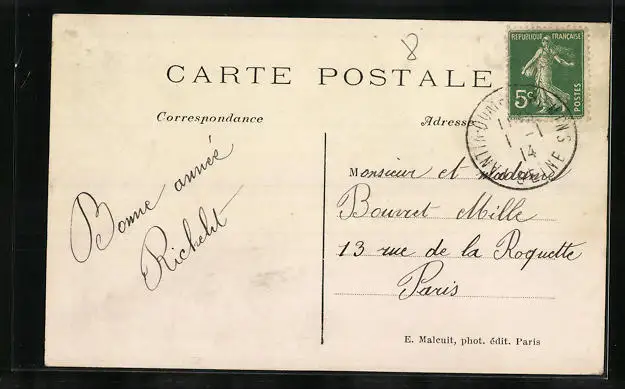 8
CARTE POSTALE
REPUBLIQUE FRANÇAISE
5c
POSTES
Correspondance
Adresse
1 -1
14
SEINE
Bonne année
Monsieur et madame
Bouvret Mille
13 rue de la Roquette
Paris
E. Malcuit, phot. édit. Paris